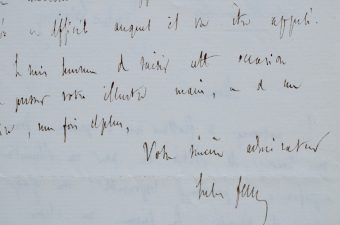 si difficile auquel il va être appelé.
Je suis heureux de saisir cette occasion
presser votre illustre main, et de me
une fois de plus,
Votre sincère admirateur
Jules Ferry